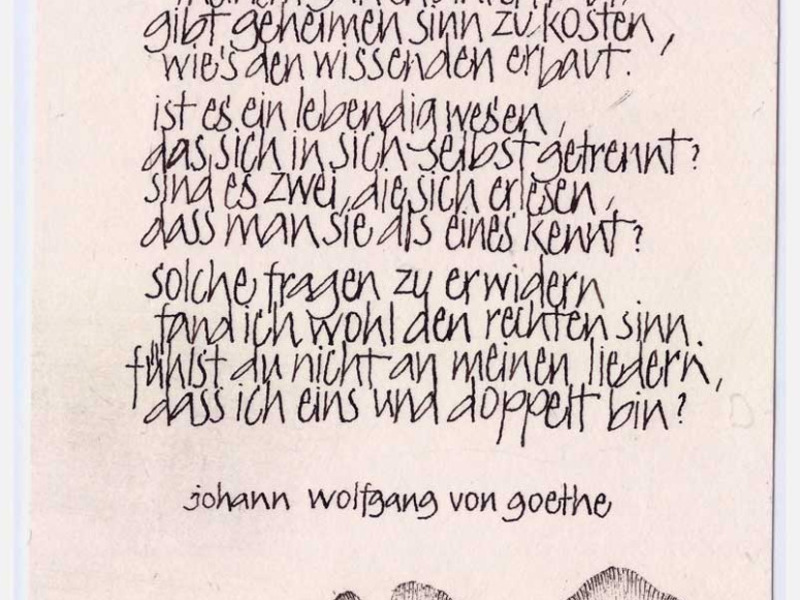 gibt geheimen sinn zu kosten,
wie's den wissenden erbaut.
ist es ein lebendig wesen,
das sich in sich selbst getrennt?
sind es zwei, die sich erlesen,
dass man sie als eines kennt?
solche fragen zu erwidern
fand ich wohl den rechten sinn.
fühlst du nicht an meinen liedern,
dass ich eins und doppelt bin?
johann wolfgang von goethe